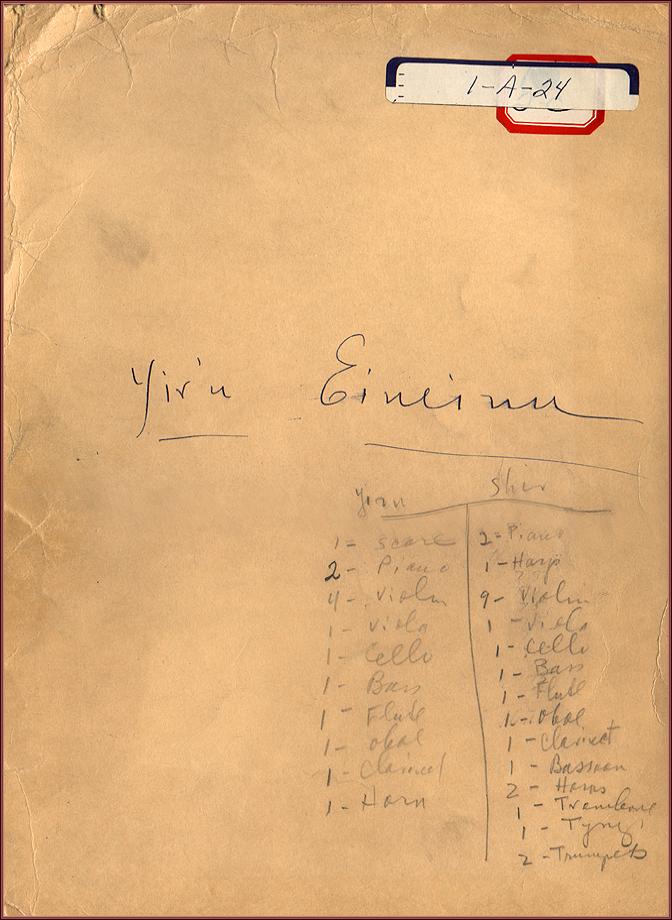 1-A-24
Yir'u Eineinu
Yiru
1- score
2- Piano
4- Violin
1- Viola
1- Cello
1- Bass
1- Flute
1- oboe
1- Clarinet
1- Horn
Shir
2- Piano
1- Harp
9- Violin
1- Viola
1- Cello
1- Bass
1- Flute
1- oboe
1- Clarinet
1- Bassoon
2- Horns
1- Trombone
1-
2- Trumpets